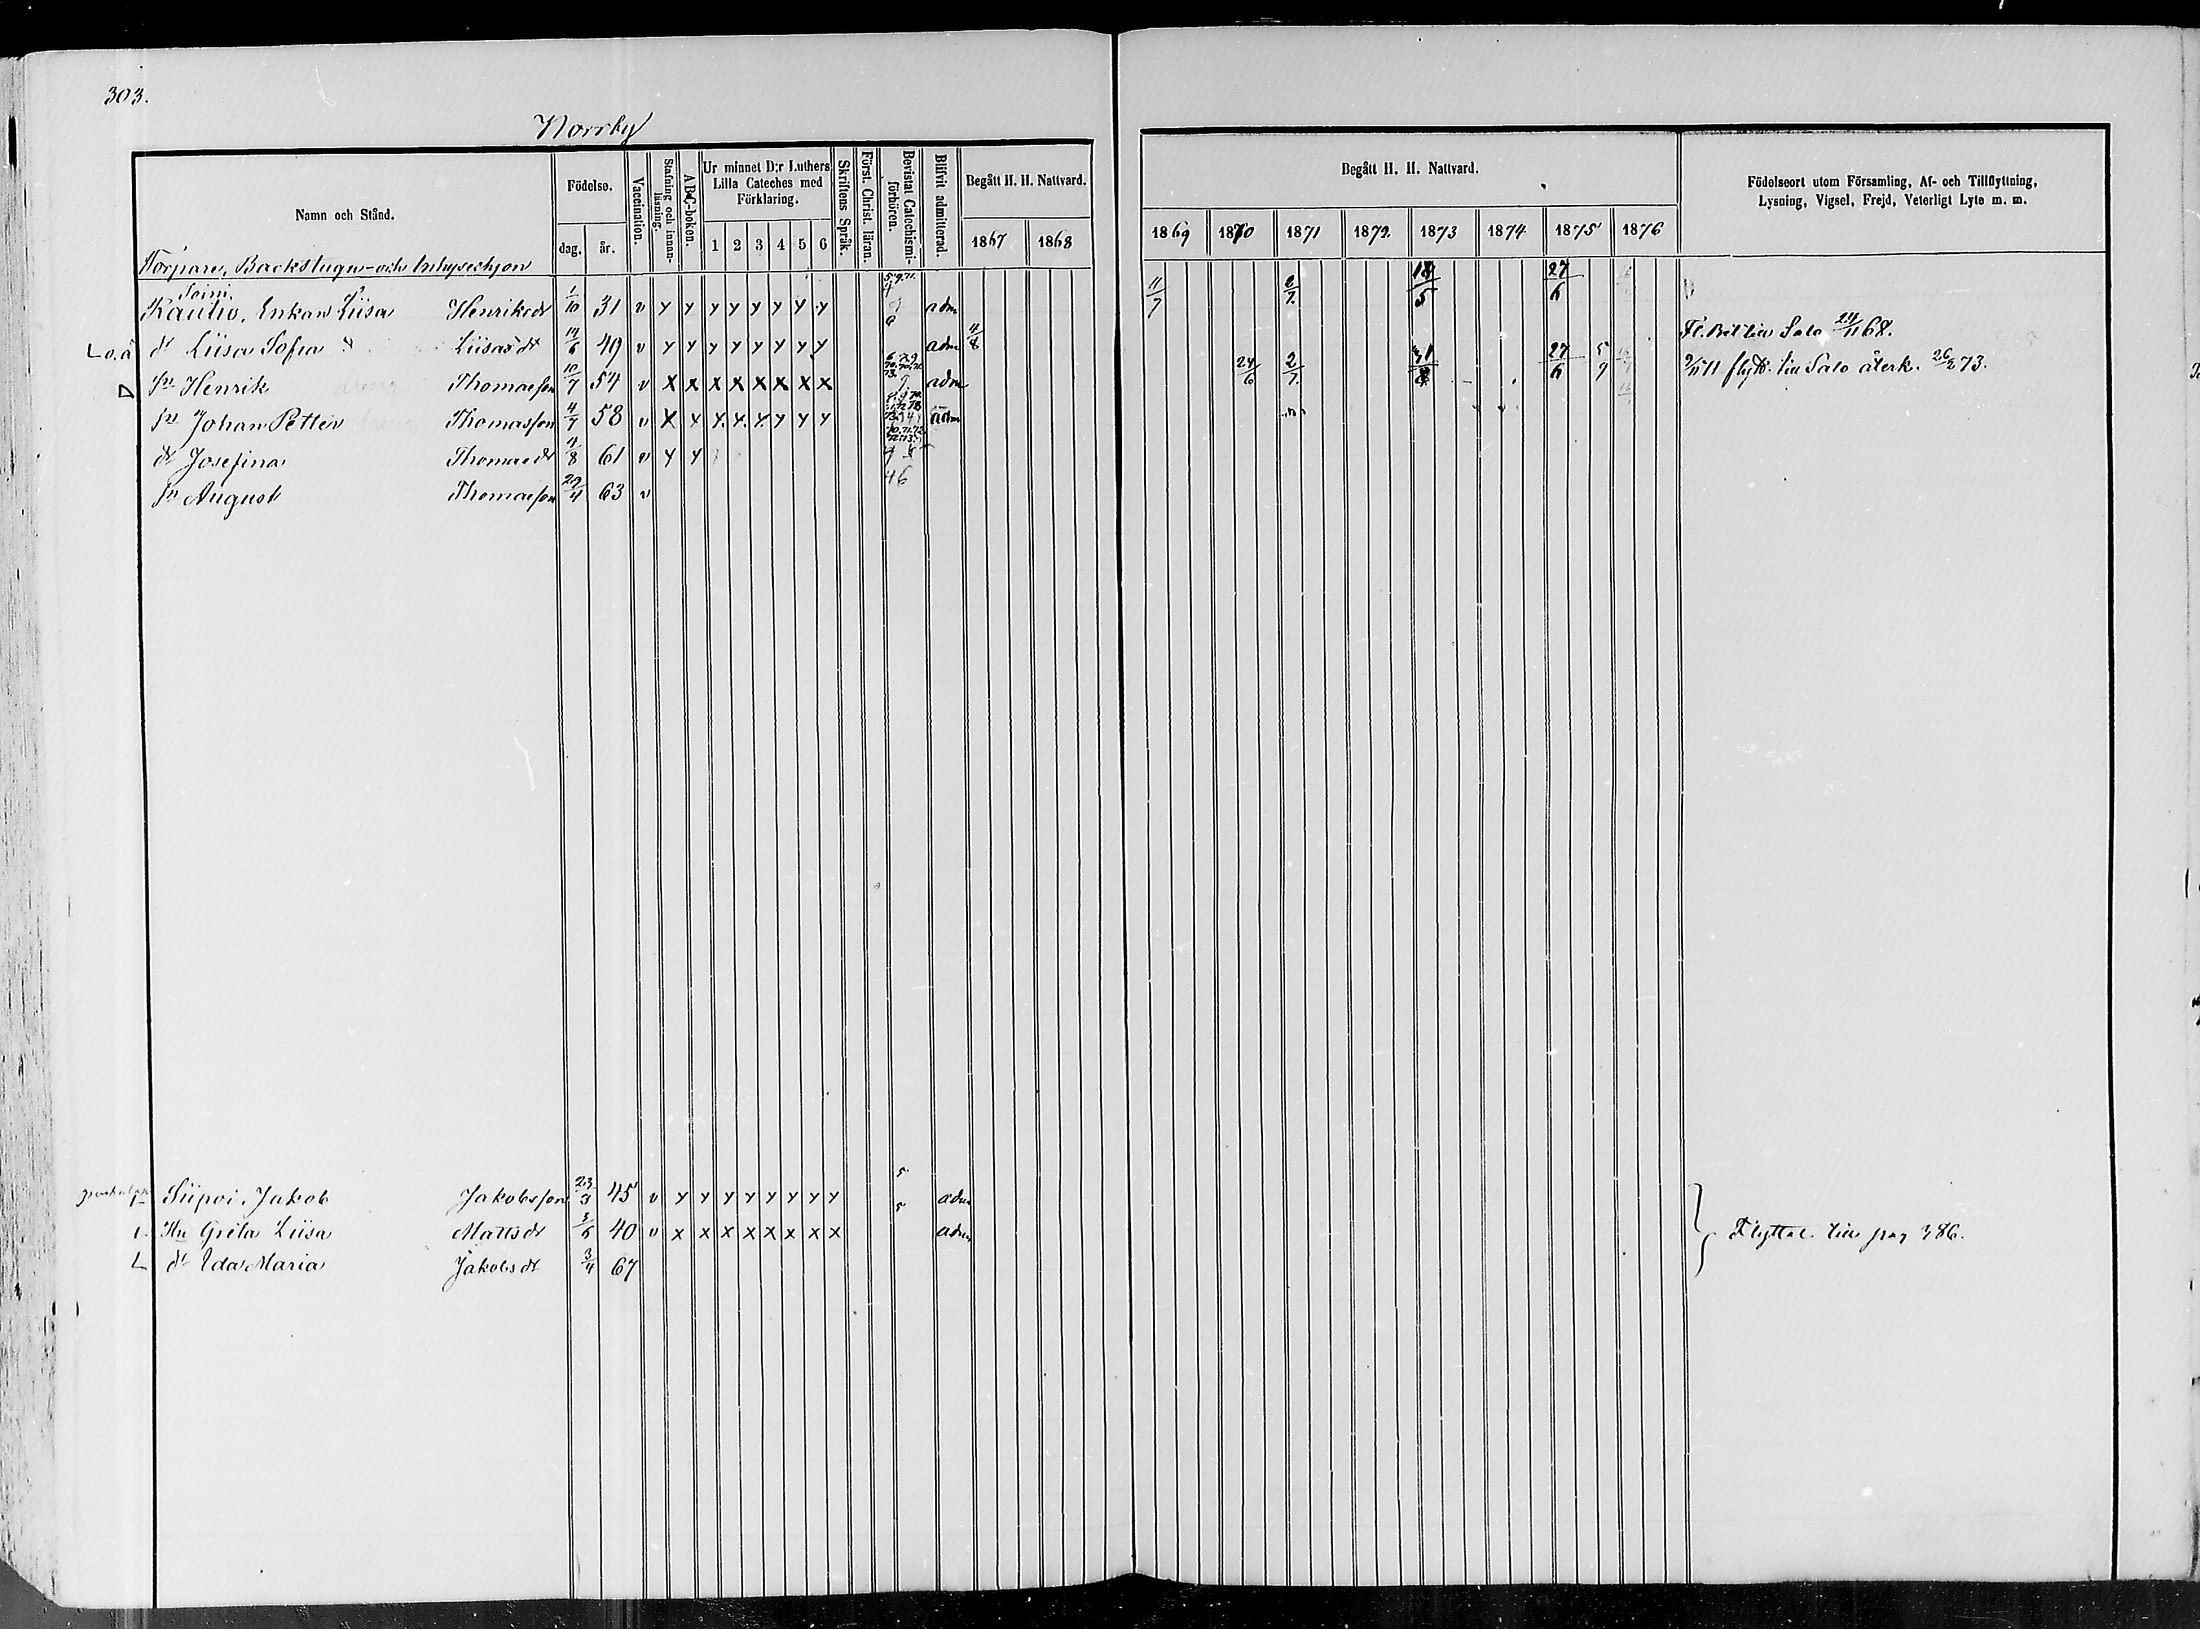 303.
Norrby
Namn och Stånd.
Födelse.
dag.
år.
Vaccination.
Stafning och innanläsning.
ABC-boken.
Ur minnet D:r Luthers Lilla Cateches med Förklaring.
1 2 3 4 5 6
Skriftens Språk.
Först. Christ. läran.
Bevistat Catechismiförhören.
Blifvit admitterad.
Begått H. H. Nattvard.
1867 1868
Begått H. H. Nattvard.
1869 1870 1871 1872 1873 1874 1875 1876
Födelseort utom Församling, Af- och Tillflyttning,
Lysning, Vigsel, Frejd, Veterligt Lyte m. m.
Torpare, Backstugu- och Inhyseshjon
Soini.
Rautio, Enkan Liisa Henriksdr 1/10 31 v y y y y y y y y adm 11/7 2/7 18/5 27/6
L o. ä dr Liisa Sofia Liisasdr 14/6 49 v y y y y y y y y adm 4/8 Fl. Bet till Salo 24/11 68.
sn Henrik Thomasson 10/7 54 v x x x x x x x x adm 24/6 2/7 31/8 27/6 5/9 9/11 71 flytt. till Salo återk. 26/2 73.
sn Johan Petter Thomasson 4/7 58 v x y y y y y y y adm
dr Josefina Thomasdr 4/8 61 v y y
sn August Thomasson 29/4 63 v
Siipoi, Jakob Jakobsson 23/3 45 v y y y y y y y y 5 adm
Hu Greta Liisa Mattsdr 3/6 40 v x x x x x x x x adm Flyttat till pag 386.
L dr Ida Maria Jakobsdr 3/4 67